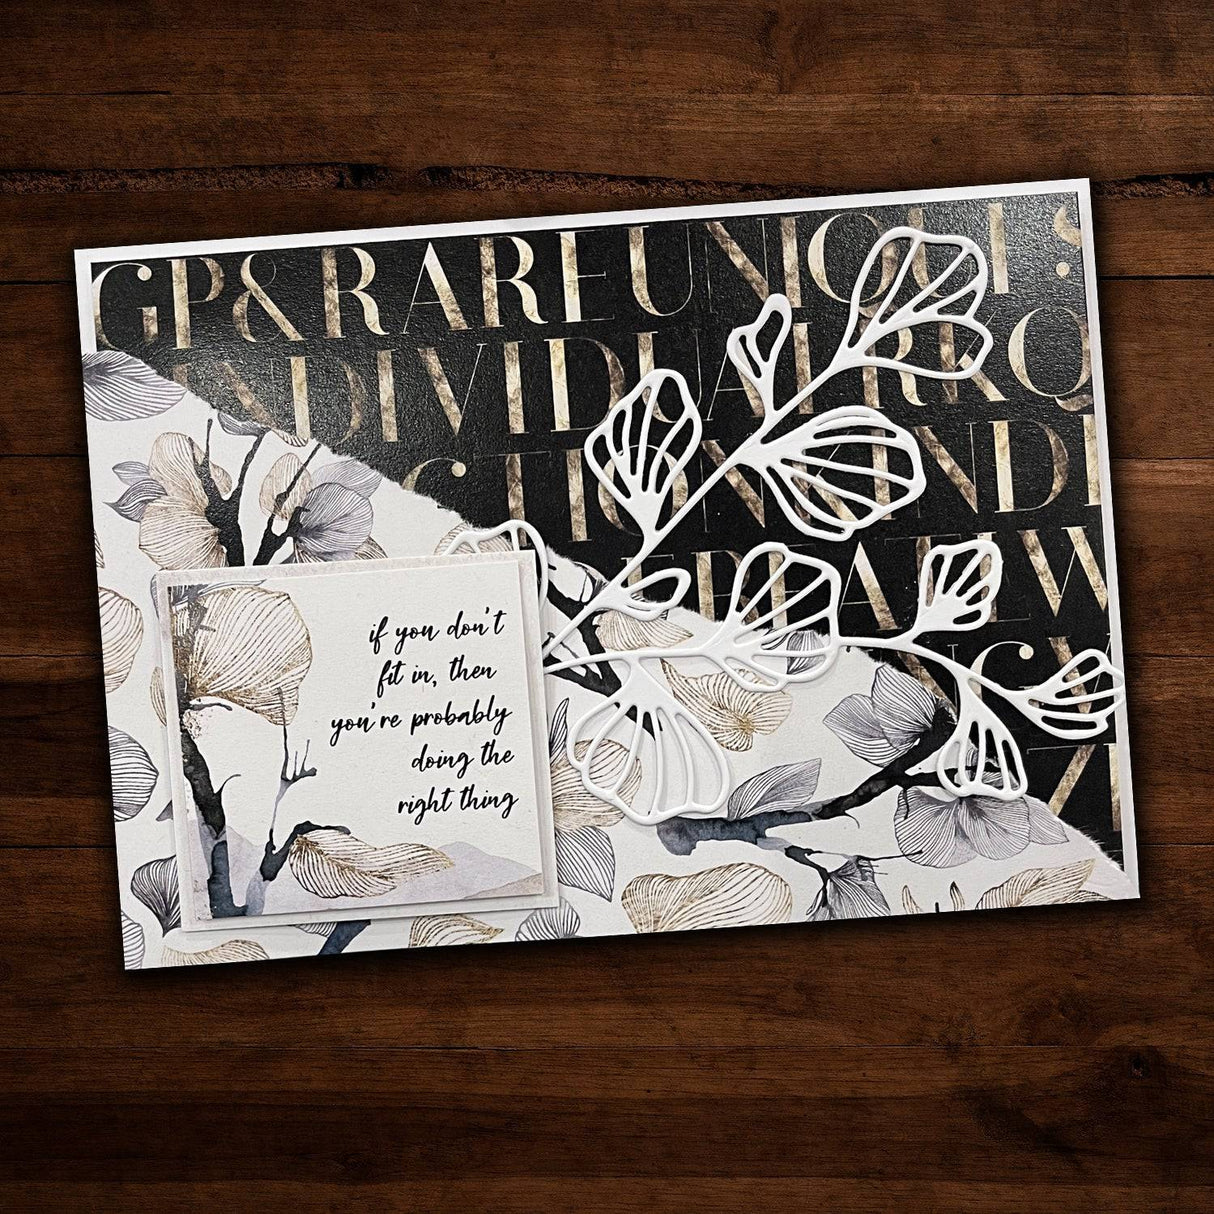 GP&RAREUNIQUE
INDIVIDUALRKQ
TIONKINDI
if you don't
fit in, then
you're probably
doing the
right thing